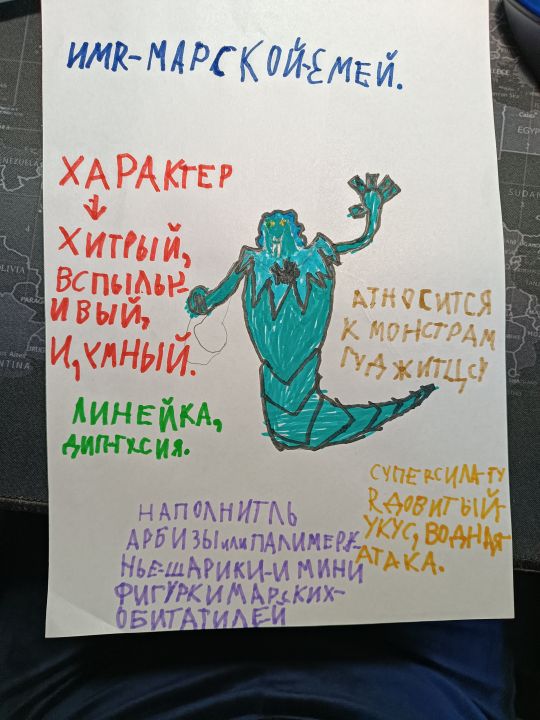 ИМЯ-МАРСКОЙ-ЗМЕЙ.
ХАРАКТЕР
ХИТРЫЙ,
ВСПЫЛЬЧ-
ИВЫЙ,
И, УМНЫЙ.
АТНОСИТСЯ
К МОНСТРАМ
ГУДЖИТЦУ
ЛИНЕЙКА,
СУПЕРСИЛА-ГУ
ЯДОВИТЫЙ-
УКУС, ВОДНАЯ-
АТАКА.
НАПОЛНИТЛЬ
АРБИЗЫ или ПАЛИМЕРЖ-
НЬЕ-ШАРИКИ-И МИНИ
ФИГУРКИ МАРСКИХ-
ОБИТАТИЛЕЙ